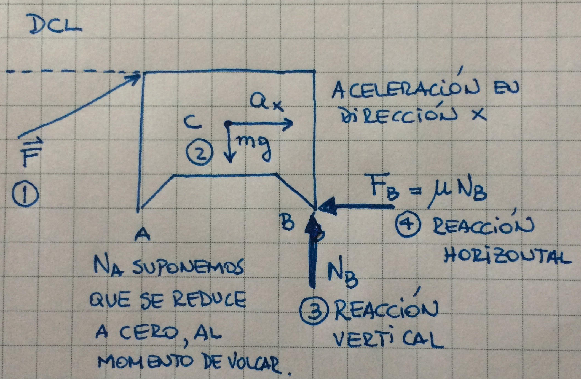 DCL
ACELERACIÓN EN
DIRECCIÓN X
C
aₓ
②
mg
F⃗
①
F_B = μ N_B
④ REACCIÓN
HORIZONTAL
A
B
B
N_B
③ REACCIÓN
VERTICAL
NA SUPONEMOS
QUE SE REDUCE
A CERO, AL
MOMENTO DE VOLCAR.